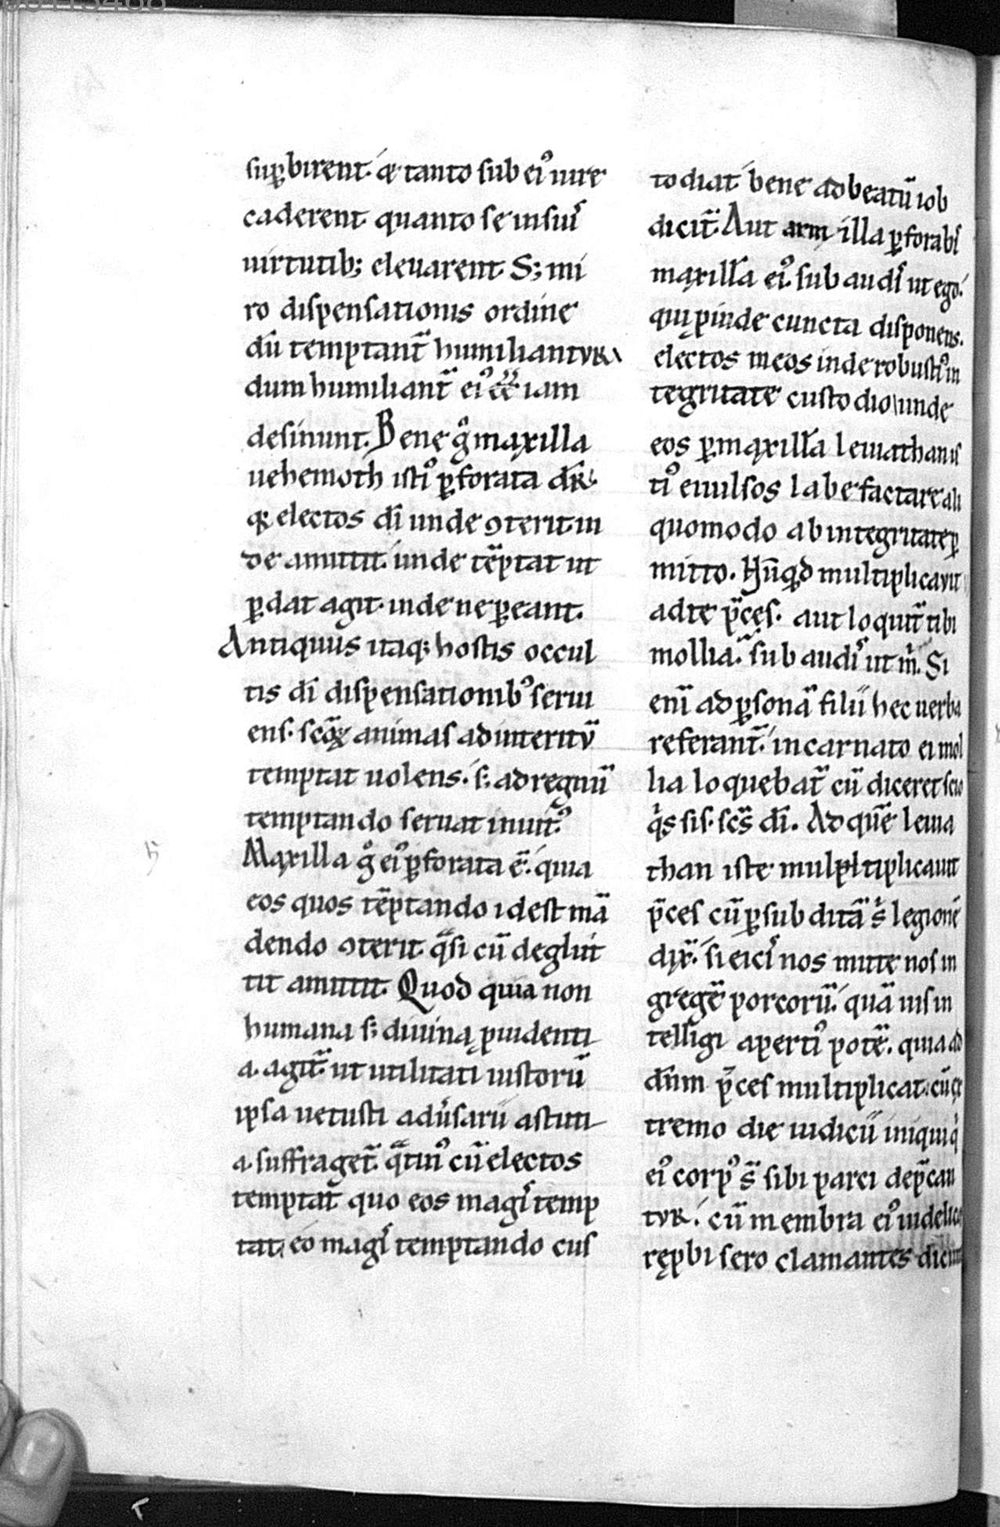 suꝑbirent. & tanto sub ei᷒ iure
caderent quanto se in suis̄
uirtutib; eleuarent. S; mi
ro dispensationis ordine
dū temptant᷑ humiliantur.
dum humiliant᷑ ei᷒ ēē iam
desinunt. Bene gͦ maxilla
uehemoth isti᷒ ꝑforata dr̄.
qꝛ electos dī unde ꝯterit. in
de amittit. unde tēptat ut
ꝑdat agit. inde ne ꝑeant.
Antiquus itaq; hostis occul
tis dī dispensationib᷒ serui
ens. scōꝝ animas ad interitū
temptat uolens. s; ad regnū
temptando seruat inuit᷒.
Maxilla gͦ ei᷒ ꝑforata ē. quia
eos quos tēptando idest mā
dendo ꝯterit. q̄si cū deglut
tit amittit. Quod quia non
humana s; diuina ꝓuidenti
a. agit᷑. ut utilitati iustorū
ipsa uetusti adūsarii astuti
a. suffraget᷑. q̄tin᷒ cū electos
temptat quo eos magis̄ temp
tat. eo magis̄ temptando cus
todiat bene ad beatū iob
dicit᷑. Aut arm illa ꝑforabis̄
maxillā ei᷒. subaudis̄ ut ego.
qui ꝓuide cuncta disponens.
electos meos inde robusti᷒ in
tegritate custodio. unde
eos ꝑ maxillā leuiathan is
ti᷒ euulsos labefactare ali
quomodo ab integritate ꝑ
mitto. Nūqd multiplicauit
ad te p̄ces. aut loquit᷑ tibi
mollia. subaudis̄ ut m̄. Si
enī ad ꝑsonā filii hec uerba
referant᷑. incarnato ei mol
lia loquebat᷑ cū diceret scio
q̇s sis. scs̄ dī. Ad quē leuia
than iste mulpltiplicauit
p̄ces cū ꝑ subditā s̄ legionē
dix̄. si eicis̄ nos mitte nos in
gregē porcorū. quā uis in
telligi aperti᷒ potē. quia ad
dnm p̄ces multiplicat. cū ex
tremo die iudicii iniqui q
ei᷒ corp᷒ s̄ sibi parci dep̄can
tur. cū membra ei᷒ in delic
rep̄bi sero clamantes dicunt